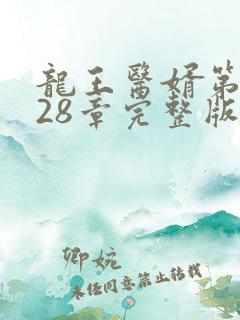 龍王醫婿第
28章完整版
卿婉
未经同意禁止转载